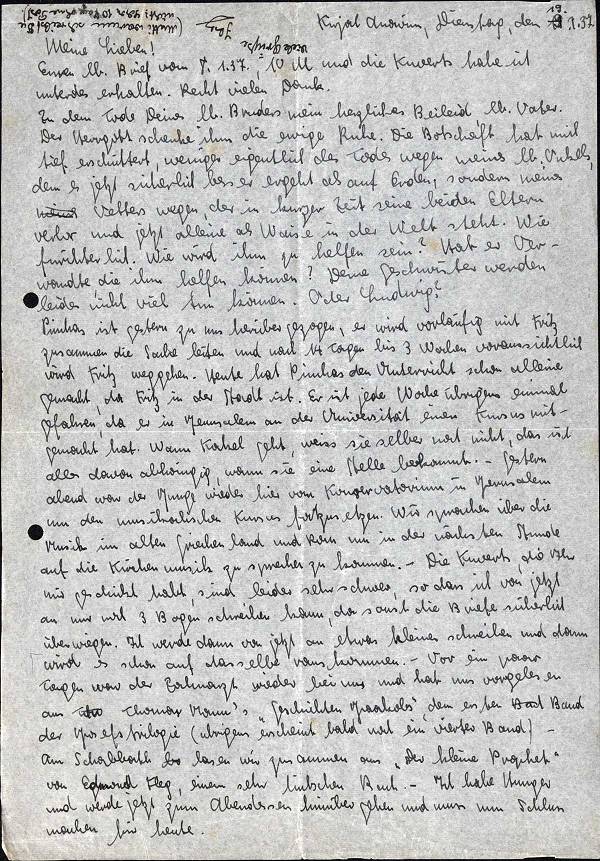 Kirjat Anavim, Dienstag, den 19.1.37
Meine Lieben!
Euren lb. Brief vom 7.1.37, 10 M und die Kuverts habe ich
unterdes erhalten. Recht vielen Dank.
Zu dem Tode Deines lb. Bruders mein herzliches Beileid lb. Vater.
Der Herrgott schenke ihm die ewige Ruhe. Die Botschaft hat mich
tief erschüttert, weniger eigentlich des Todes wegen meines lb. Onkels,
dem es jetzt sicherlich besser ergeht als auf Erden, sondern meines
Vetters wegen, der in kurzer Zeit seine beiden Eltern
verlor und jetzt alleine als Waise in der Welt steht. Wie
fürchterlich. Wie wird ihm zu helfen sein? Hat er Ver-
wandte, die ihm helfen können? Deine Geschwister werden
leider nicht viel tun können. Oder Ludwig?
Pinchas ist gestern zu uns herübergezogen, er wird vorläufig mit Fritz
zusammen die Sache leiten und nach 14 Tagen bis 3 Wochen voraussichtlich
wird Fritz weggehen. Heute hat Pinchas den Unterricht schon alleine
gemacht, da Fritz in der Stadt ist. Er ist jede Woche übrigens einmal
gefahren, da er in Jerusalem an der Universität einen Kursus mit-
gemacht hat. Wann Rahel geht, weiss sie selber noch nicht, das ist
alles davon abhängig, wann sie eine Stelle bekommt. - Gestern
abend war der Junge wieder hier vom Konservatorium in Jerusalem
um den musikalischen Kursus fortzusetzen. Wir sprachen über die
Musik im alten Griechenland und kam nun in der nächsten Stunde
auf die Kirchenmusik zu sprechen zu kommen. - Die Kuverts die Ihr
mir geschickt habt, sind leider sehr schwer, so dass ich von jetzt
an nur noch 3 Bogen schreiben kann, da sonst die Briefe sicherlich
überwiegen. Ich werde dann von jetzt an etwas kleiner schreiben und dann
wird es schon auf dasselbe rauskommen. - Vor ein paar
Tagen war der Zahnarzt wieder bei uns und hat uns vorgelesen
aus Thomas Mann's "Geschichten Jaakobs" dem ersten Band
der Josefstrilogie (übrigens erscheint bald noch ein vierter Band) -
Am Schabbath lasen wir zusammen aus "Der kleine Prophet"
von Edmond Fleg, einem sehr hübschen Buch. - Ich habe Hunger
und werde jetzt zum Abendessen hinüber gehen und muss nun Schluss
machen für heute.
viele Grüsse